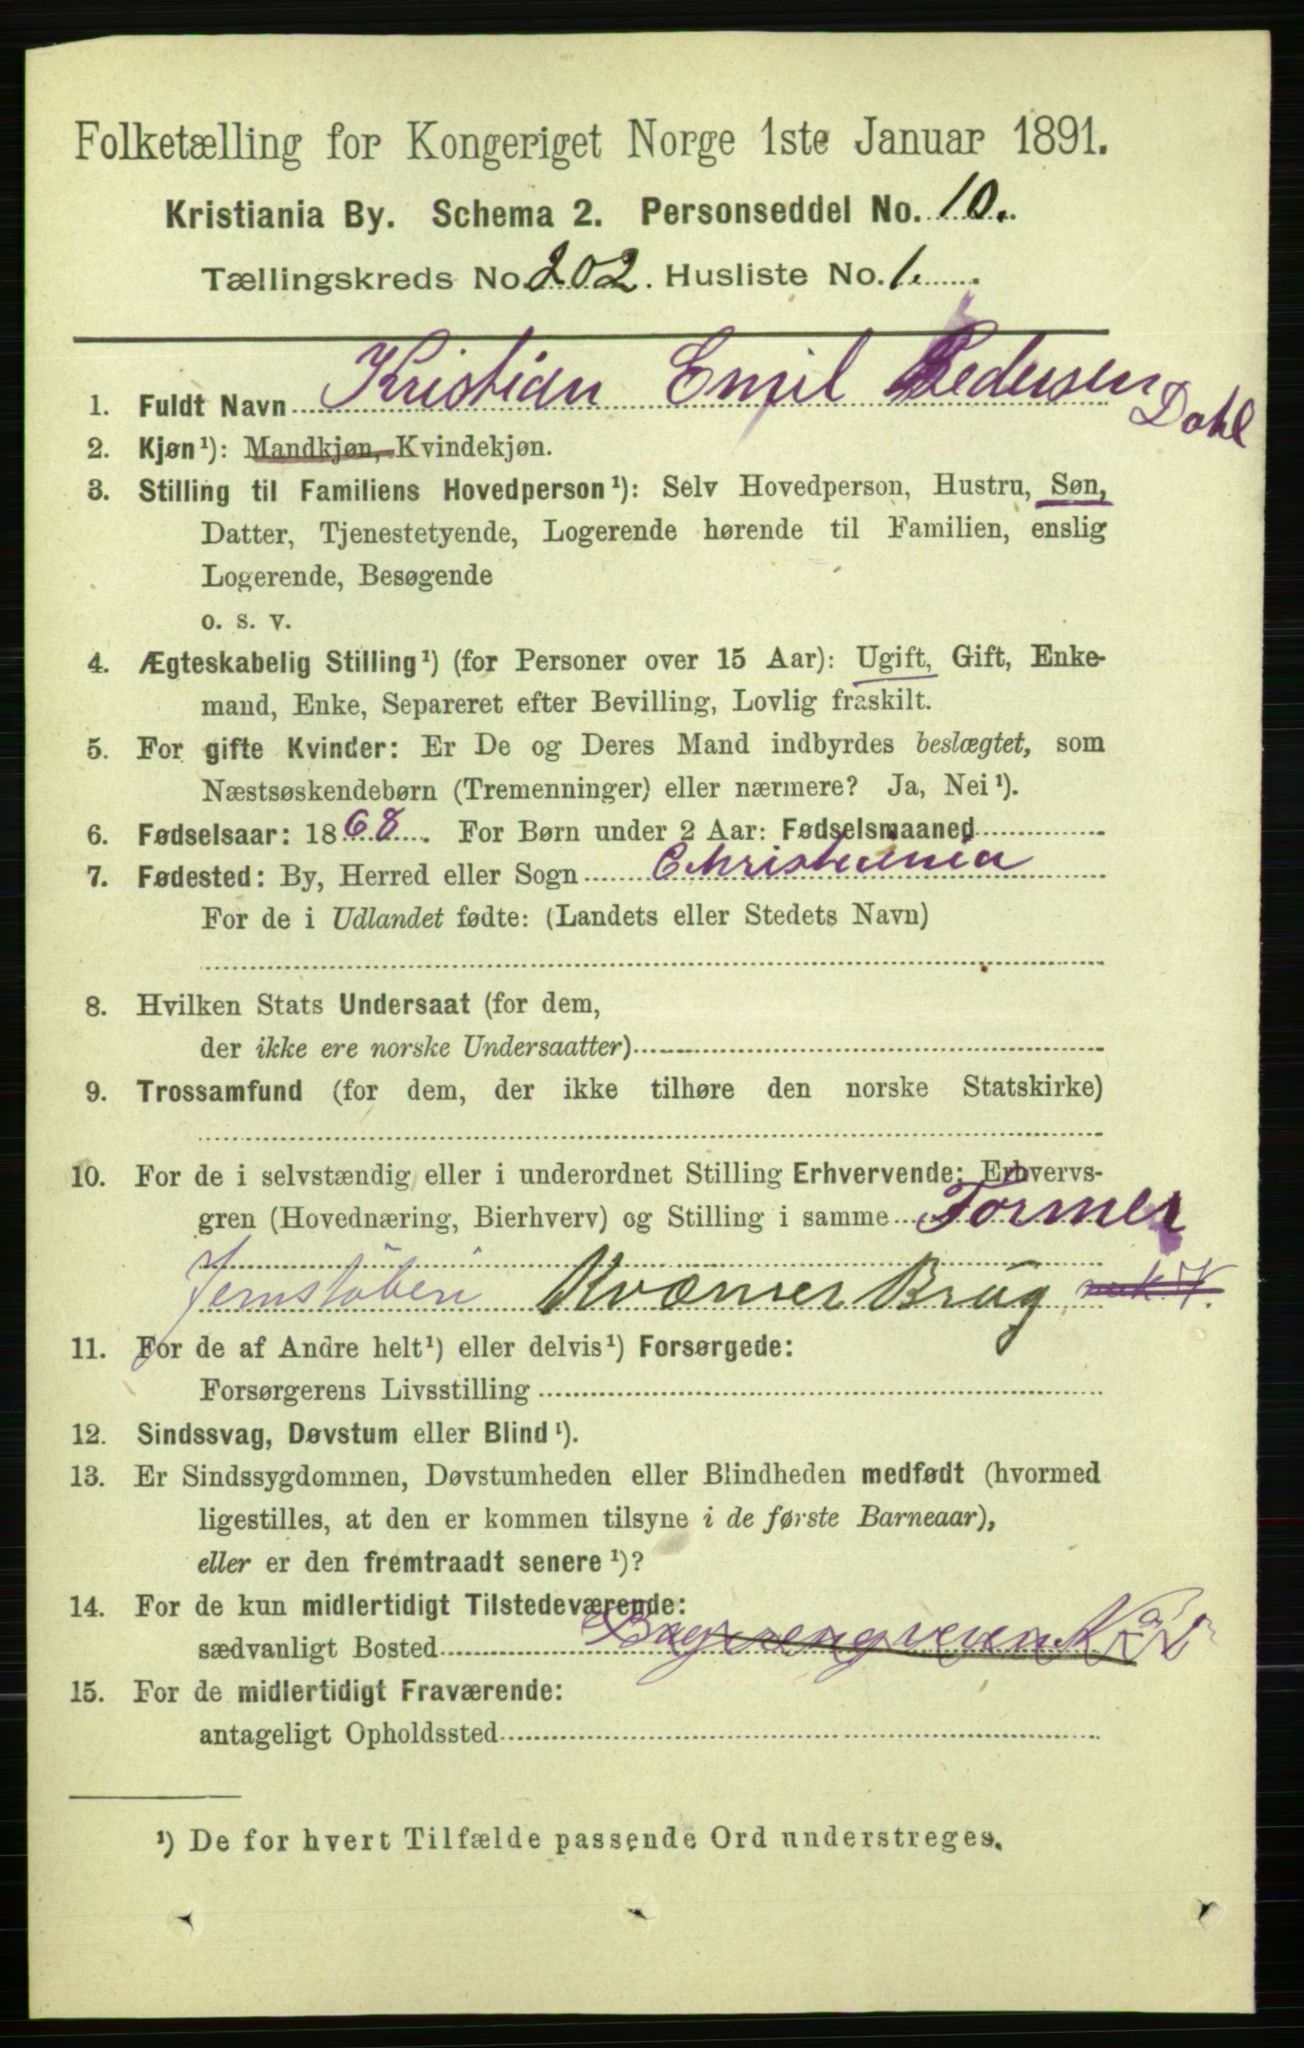 Folketælling for Kongeriget Norge 1ste Januar 1891.
Kristiania By. Schema 2. Personseddel No. 10.
Tællingskreds No. 202. Husliste No. 1.
1. Fuldt Navn Kristian Emil Pedersen
Dahl
2. Kjøn¹): Mandkjøn, Kvindekjøn.
3. Stilling til Familiens Hovedperson¹): Selv Hovedperson, Hustru, Søn,
Datter, Tjenestetyende, Logerende hørende til Familien, enslig
Logerende, Besøgende
o. s. v.
4. Ægteskabelig Stilling¹) (for Personer over 15 Aar): Ugift, Gift, Enke-
mand, Enke, Separeret efter Bevilling, Lovlig fraskilt.
5. For gifte Kvinder: Er De og Deres Mand indbyrdes beslægtet, som
Næstsøskendebørn (Tremenninger) eller nærmere? Ja, Nei¹).
6. Fødselsaar: 1868. For Børn under 2 Aar: Fødselsmaaned
7. Fødested: By, Herred eller Sogn Christiania
For de i Udlandet fødte: (Landets eller Stedets Navn)
8. Hvilken Stats Undersaat (for dem,
der ikke ere norske Undersaatter)
9. Trossamfund (for dem, der ikke tilhøre den norske Statskirke)
10. For de i selvstændig eller i underordnet Stilling Erhvervende: Erhvervs-
gren (Hovednæring, Bierhverv) og Stilling i samme Former
Jernstøberi Kværner Brug
11. For de af Andre helt¹) eller delvis¹) Forsørgede:
Forsørgerens Livsstilling
12. Sindssvag, Døvstum eller Blind¹).
13. Er Sindssygdommen, Døvstumheden eller Blindheden medfødt (hvormed
ligestilles, at den er kommen tilsyne i de første Barneaar),
eller er den fremtraadt senere¹)?
14. For de kun midlertidigt Tilstedeværende:
sædvanligt Bosted
15. For de midlertidigt Fraværende:
antageligt Opholdssted
¹) De for hvert Tilfælde passende Ord understreges.